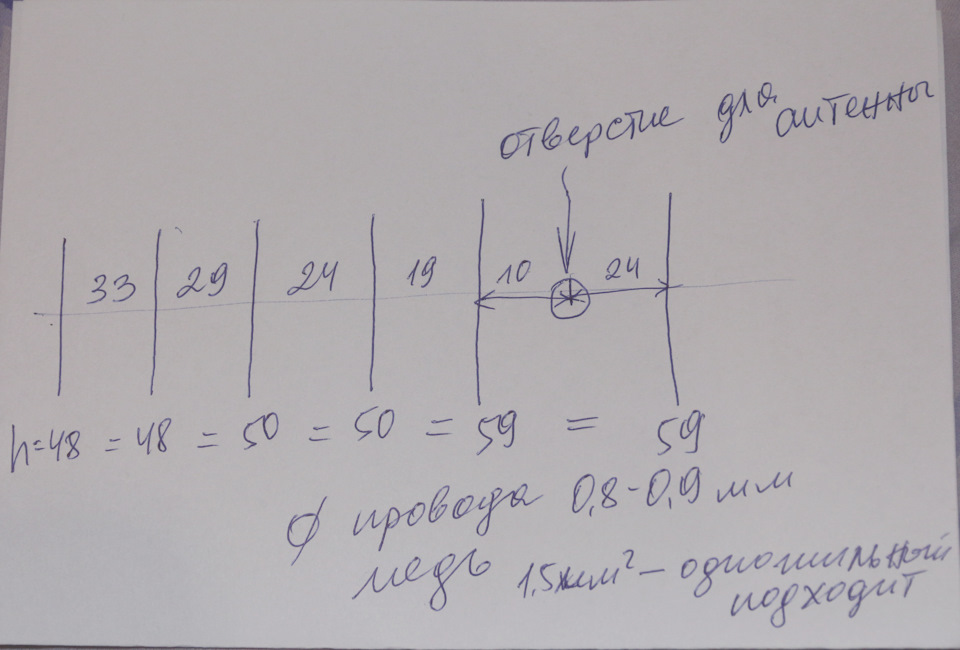 отверстие для антенны
33 29 24 19 10 24
h=48 = 48 = 50 = 50 = 59 = 59
∅ провода 0,8-0,9 мм
медь 1,5мм² – одножильный
подходит